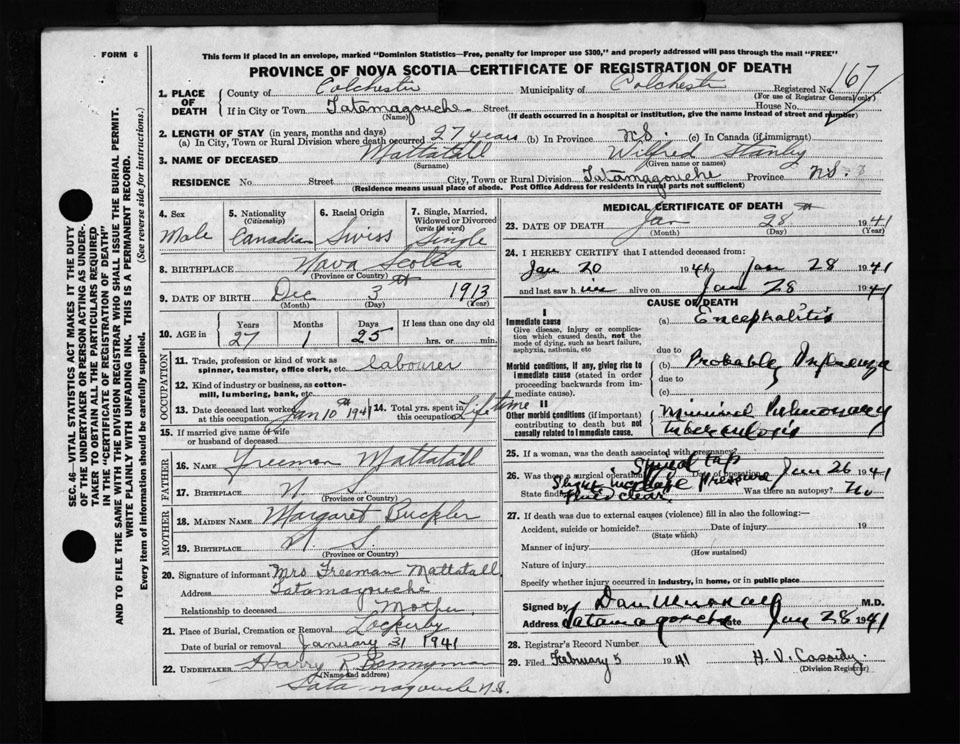 FORM 6
This form if placed in an envelope, marked "Dominion Statistics—Free, penalty for improper use $300," and properly addressed will pass through the mail "FREE"
PROVINCE OF NOVA SCOTIA—CERTIFICATE OF REGISTRATION OF DEATH
167
1. PLACE OF DEATH
County of Colchester Municipality of Colchester Registered No.
(For use of Registrar General only)
If in City or Town Tatamagouche Street House No.
(Name) (If death occurred in a hospital or institution, give the name instead of street and number)
2. LENGTH OF STAY (in years, months and days)
(a) In City, Town or Rural Division where death occurred 27 years (b) In Province N.S. (c) In Canada (if immigrant)
3. NAME OF DECEASED Mattatall Wilfred Stanley
(Surname) (Given name or names)
RESIDENCE No. Street City, Town or Rural Division Tatamagouche Province N.S.
(Residence means usual place of abode. Post Office Address for residents in rural parts not sufficient)
4. Sex
Male
5. Nationality
(Citizenship)
Canadian
6. Racial Origin
Swiss
7. Single, Married, Widowed or Divorced
(write the word)
Single
8. BIRTHPLACE Nova Scotia
(Province or Country)
9. DATE OF BIRTH Dec 3th 1913
(Month) (Day) (Year)
10. AGE in
Years Months Days If less than one day
27 1 25 hrs. or min.
OCCUPATION
11. Trade, profession or kind of work as spinner, teamster, office clerk, etc. labourer
12. Kind of industry or business, as cotton-mill, lumbering, bank, etc.
13. Date deceased last worked at this occupation Jan 10th 1941 14. Total yrs. spent in this occupation Lifetime
15. If married give name of wife or husband of deceased
FATHER
16. NAME Freeman Mattatall
17. BIRTHPLACE N. S.
(Province or Country)
MOTHER
18. MAIDEN NAME Margaret Buckler
19. BIRTHPLACE N. S.
(Province or Country)
20. Signature of informant Mrs Freeman Mattatall
Address Tatamagouche
Relationship to deceased Mother
21. Place of Burial, Cremation or Removal Lockerby
Date of burial or removal January 31 1941
22. UNDERTAKER Harry R Bonnyman
(Name and address)
Tatamagouche N.S.
MEDICAL CERTIFICATE OF DEATH
23. DATE OF DEATH Jan 28th 1941
(Month) (Day) (Year)
24. I HEREBY CERTIFY that I attended deceased from:
Jan 20 1941 Jan 28 1941
and last saw him alive on Jan 28 1941
CAUSE OF DEATH
I
Immediate cause
Give disease, injury or complication which caused death, not the mode of dying, such as heart failure, asphyxia, asthenia, etc
(a) Encephalitis
due to
Morbid conditions, if any, giving rise to immediate cause (stated in order proceeding backwards from immediate cause).
(b) Probably Influenza
due to
(c)
II
Other morbid conditions (if important) contributing to death but not causally related to immediate cause.
Minimal Pulmonary tuberculosis
25. If a woman, was the death associated with pregnancy?
26. Was there a surgical operation Spinal tap Date of operation Jan 26 1941
State findings Slight increase Pressure Was there an autopsy? No
fluid clear.
27. If death was due to external causes (violence) fill in also the following:—
Accident, suicide or homicide? Date of injury 19
(State which)
Manner of injury
(How sustained)
Nature of injury
Specify whether injury occurred in industry, in home, or in public place
Signed by Dan Murray M.D.
Address Tatamagouche Date Jan 28 1941
28. Registrar's Record Number
29. Filed February 5 1941 H. V. Cassidy
(Division Registrar)
SEC. 46—VITAL STATISTICS ACT MAKES IT THE DUTY
OF THE UNDERTAKER OR PERSON ACTING AS UNDER-
TAKER TO OBTAIN ALL THE PARTICULARS REQUIRED
IN THE "CERTIFICATE OF REGISTRATION OF DEATH"
AND TO FILE THE SAME WITH THE DIVISION REGISTRAR WHO SHALL ISSUE THE BURIAL PERMIT.
WRITE PLAINLY WITH UNFADING INK. THIS IS A PERMANENT RECORD.
Every item of information should be carefully supplied. (See reverse side for instructions.)